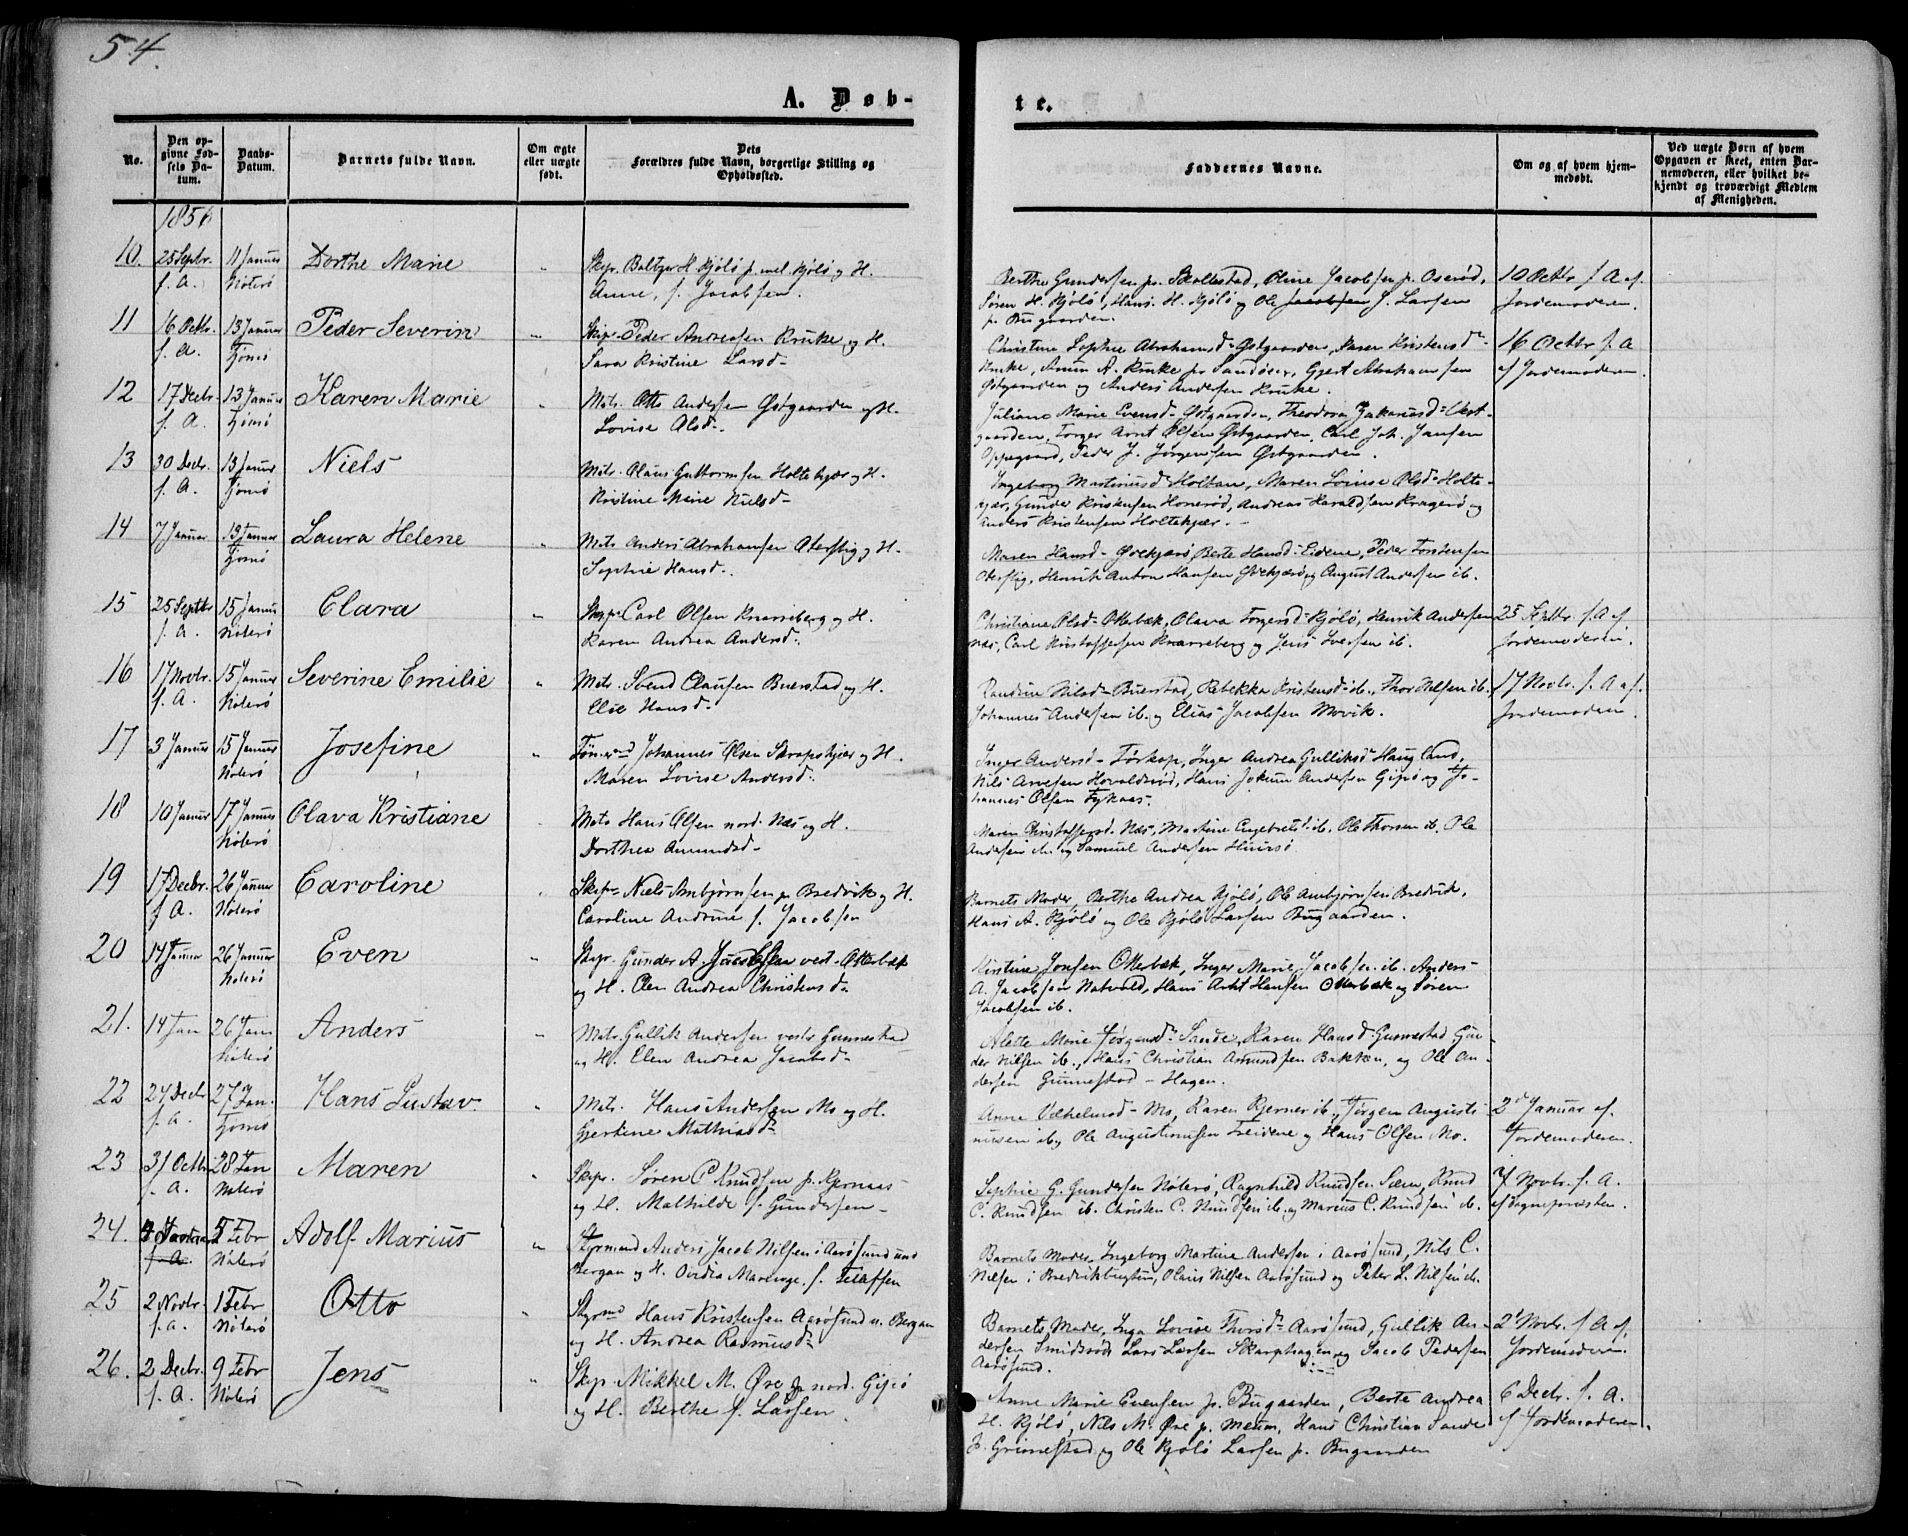 54.
A. Døb-
te.
No.
Den op-
givne Fød-
sels Da-
tum.
Daabs-
Datum.
Barnets fulde Navn.
Om ægte
eller uægte
født.
Dets
Forældres fulde Navn, borgerlige Stilling og
Opholdssted.
Faddernes Navne.
Om og af hvem hjem-
medøbt.
Ved uægte Børn af hvem
Opgaven er skeet, enten Bar-
nemoderen, eller hvilket be-
kjendt og troværdigt Medlem
af Menigheden.
1856
10. 25 Septbr. f. A. 11 Januar Nøterø Dorthe Marie
Skpr. Baltzer H. Kjølø p. Kjølø og H.
Anne, f. Jacobsen.
Berthe Gundersen p. Skallestad, Oline Jacobsen p. Oserød,
Søren H. Kjølø, Hans H. Kjølø og Ole J. Larsen
p. Bugaarden.
10 Octbr. f. A. af
Jordemoderen.
11 16 Octbr. f. A. 13 Januar Tjømø Peder Severin
Skpr. Peder Andreasen Kruke og H.
Sara Kristine Larsd.
Christine Sophie Abrahamsd. Østgaarden, Karen Kristensd.
Kruke, Anun A. Kruke pr Sandøser, Gjert Abrahamsen
Østgaarden og Anders Andersen Kruke.
16 Octbr f. A
af Jordemoderen.
12 17 Decbr. f. A. 13 Januar Tjømø Karen Marie
Matr. Otto Andersen Østgaarden og H.
Lovise Olsd.
Juliane Marie Evensd. Østgaarden, Theodora Zakariasd. Vest-
gaarden, Torger Arnt Olsen Østgaarden, Carl Joh. Jansen
Oppegaard, Peder J. Jørgensen Østgaarden.
13 30 Decbr. f. A. 13 Januar Tjømø Niels
Matr. Olaus Guttormsen Holtekjær og H.
Kristine Marie Nielsd.
Ingeborg Martinusd. Holtan, Maren Lovise Olsd. Holte-
kjær, Gunder Kristensen Honerød, Andreas Haraldsen Kragerø og
Anders Kristensen Holtekjær.
14 7 Januar 13 Januar Tjømø Laura Helene
Matr. Anders Abrahamsen Oterstig og H.
Sophie Hansd.
Maren Hansd. Berte Hansd. Eidene, Peder Torstensen
Oterstig, Henrik Anton Hansen og August Andersen ib.
15 25 Septbr f. A. 15 Januar Nøterø Clara
Skpr. Carl Olsen Knarreberg og H.
Karen Andrea Andersd.
Christiane Olsd. Otterbæk, Olava Torgersd. Kjølø, Henrik Andersen
Næs, Carl Kristoffersen Knarreberg og Jens Iversen ib.
25 Septbr. f. A. af
Jordemoderen.
16 17 Novbr. f. A. 15 Januar Nøterø Severine Emilie
Matr. Svend Clausen Buerstad og H.
Elie Hansd.
Randine Nilsd. Buerstad, Rebekka Kristensd. ib., Thor Nilsen ib.,
Johannes Andersen ib. og Elias Jacobsen Movik.
17 Novbr. f. A. af
Jordemoderen.
17 3 Januar 15 Januar Nøterø Josefine
Tømrmd Johannes Olsen Skrapskjær og H.
Maren Lovise Andersd.
Inger Andersd. Torkop, Inger Andrea Gulliksd. Haugland,
Nils Arvesen Hovaldsrød, Hans Jokum Andersen Gipø og Jo-
hannes Olsen.
18 10 Januar 17 Januar Nøterø Olava Kristiane
Matr Hans Olsen nord. Næs og H.
Dorthea Amundsd.
Maren Christoffersd. Næs, Martine Engebretsd. ib, Ole Thorsen ib. Ole
Andersen ib. og Samuel Andersen Huusø
19 17 Decbr. f. A. 26 Januar Nøterø Caroline
Skpr Niels Anbjørnsen p. Bredvik og H.
Caroline Andrine f. Jacobsen
Barnets Moder, Berthe Andrea Kjølø, Ole Anbjørnsen Bredvik,
Hans A. Kjølø og Ole Kjølø Larsen Bugaarden.
20 14 Januar 26 Januar Nøterø Even
Skpr. Gunder A. Jacobsen vest. Otterbæk
og H. Elen Andrea Christensd.
Kirstine Jonsen Otterbæk, Inger Marie Jacobsen ib. Anders
A. Jacobsen Natvold, Hans Arnt Hansen Otterbæk og Søren
Jacobsen ib.
21. 14 Jan 26 Jan Nøterø Anders
Matr. Gullik Andersen vestr Gunnestad
og H. Elen Andrea Jacobsd.
Alette Marie Jørgensd. Sande, Karen Hansd. Gunnestad Gun-
der Nilsen ib., Hans Christian Amundsen Bakken, og Ole An-
dersen Gunnestad-Hagen.
22 24 Decbr f. A. 27 Jan. Tjømø Hans Gustav.
Matr. Hans Andersen Mo og H.
Gjertine Mathiasd.
Anne Vilhelmsd. Mo, Karen Bjerner ib., Jørgen Augusti-
nusen ib, Ole Augustinusen Treidene og Hans Olsen Mo.
2d Januar af.
Jordemoderen.
23 31 Octbr f. A. 28 Jan Nøterø Maren
Skpr. Søren C Knudsen p. Kjernaas
og H. Mathilde f. Gundersen
Sophie G. Gundersen Nøterø, Ragnhild Knudsen Sæm, Knud
C. Knudsen ib. Christen C. Knudsen ib. og Marius C. Knudsen ib.
7 Novbr. f. A.
af Sognepresten.
24. 4 Januar f. A. 5 Febr Nøterø Adolf Marius
Styrmand Anders Jacob Nilsen i Aarøsund und
Bergan og H. Ovidia f.
Barnets Moder, Ingeborg Martine Andersen i Aarøsund, Nils C.
Nilsen i Bredvikbugten, Olaus Nilsen Aarøsund og Peter L. Nilsen ib.
25 2 Novbr. f. A. 1 Febr Nøterø Otto
Styrmd Hans Kristensen Aarøsund u. Bergan
og H. Andrea Rasmusd.
Barnets Moder, Inga Lovise Thorsd. Aarøsund, Gullik An-
dersen Smidsrød, Lars Larsen Skarphagen og Jacob Pedersen
Aarøsund.
2 Novbr. f A af.
Jordemoderen.
26. 2 Decbr. f. A. 9 Febr Nøterø Jens
Skpr. Mikkel M. Øre p nord. Gipø
og H. Berthe f. Larsen.
Anne Marie Evensen p. Bugaarden, Berte Andrea
H. Kjølø, Nils M. Øre p. Meum, Hans Christian Sande
p. Grinnestad og Ole Kjølø Larsen p. Bugaarden
6 Decbr. f. A.
af Jordemoderen.